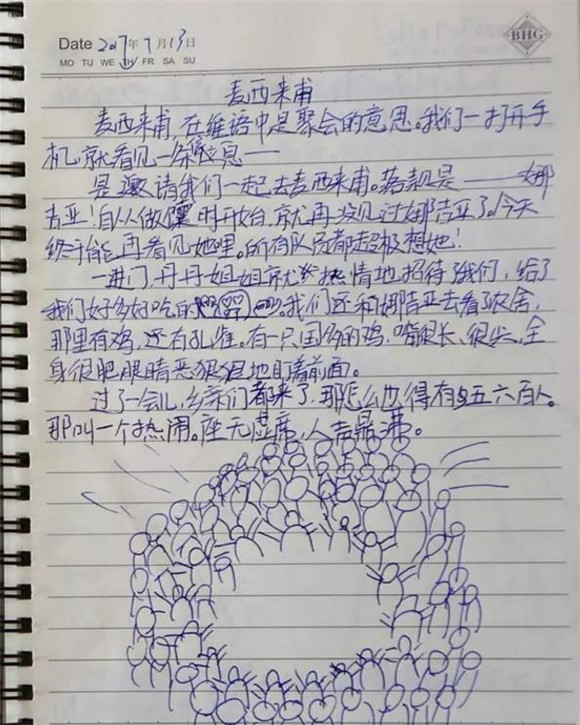 Date 2017年7月13日
BHG
MO TU WE TH FR SA SU
麦西来甫
麦西来甫,在维语中是聚会的意思。我们一打开手
机,就看见一条 息——
邀请我们一起去麦西来甫。落款是——娜
吉亚!自从做 时开始,就再没见过娜吉亚了。今天
终于能再看见她哩。所有队员都超极想她!
一进门,丹丹姐姐就 热情地招待了我们,给了
我们好多好吃的 。我们还和娜吉亚去看了农舍,
那里有鸡,还有孔雀。有一只国外的鸡,嘴很长、很尖,全
身很肥,眼睛恶狠狠地盯着前面。
过了一会儿,乡亲们都来了,那怎么也得有 五六百人。
那叫一个热闹。座无虚席,人声鼎沸。